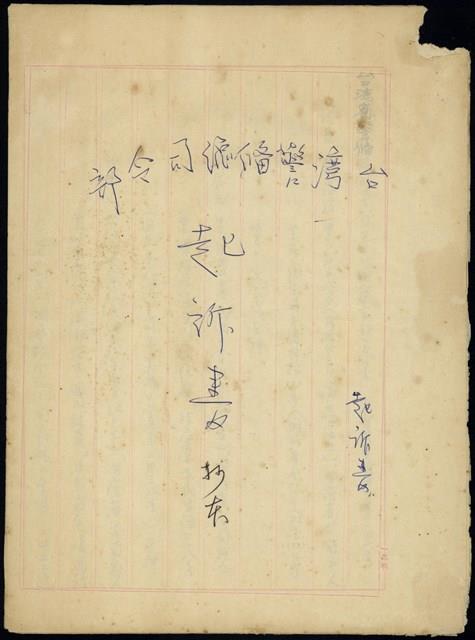 台湾警備總司令部
起訴書 抄本
起訴書